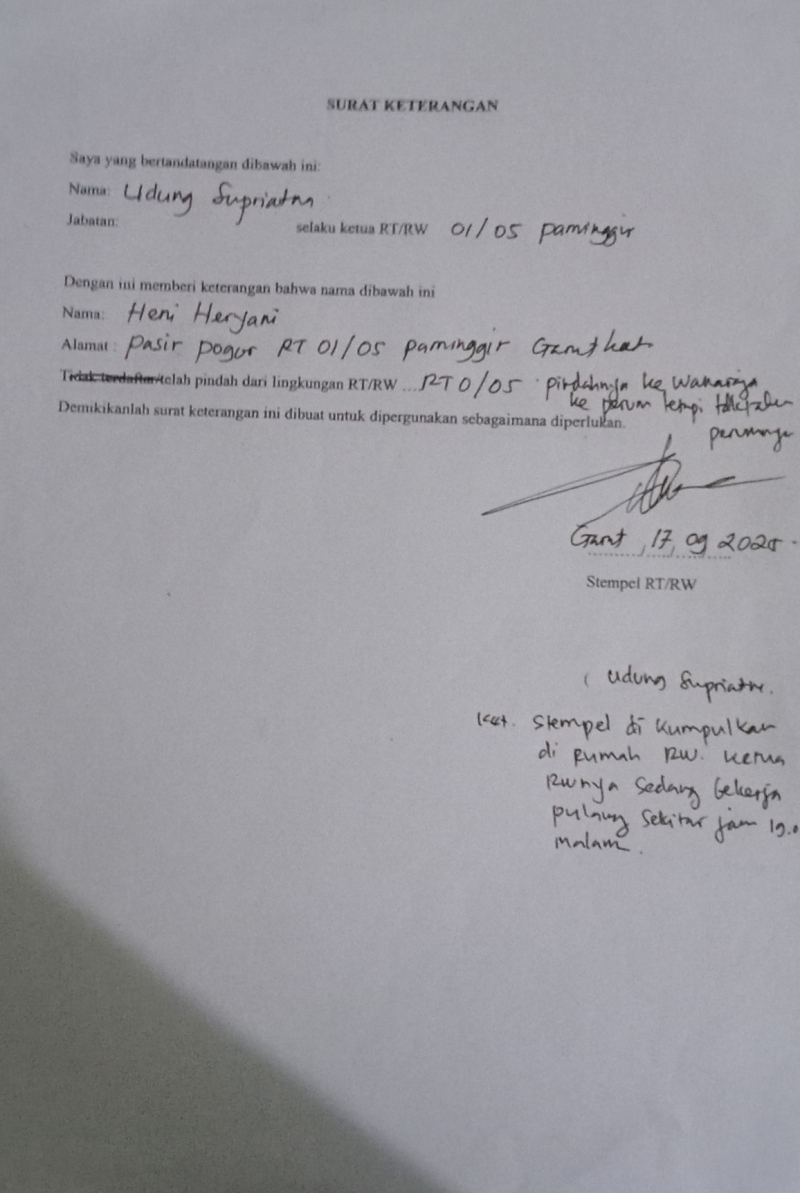 SURAT KETERANGAN
Saya yang bertandatangan dibawah ini:
Nama: Udung Supriatna
Jabatan: selaku ketua RT/RW 01/05 paminggir
Dengan ini memberi keterangan bahwa nama dibawah ini
Nama: Heni Heryani
Alamat : pasir pogor RT 01/05 paminggir Garut kat
Tidak terdaftar/telah pindah dari lingkungan RT/RW ... RT 0/05 pindahnya ke Wanaraja
ke perum
Demikikanlah surat keterangan ini dibuat untuk dipergunakan sebagaimana diperlukan.
Garut, 17, 09 2025
Stempel RT/RW
( Udung Supriatn.
Ket. Stempel di kumpulkan
di rumah RW. ketua
RWnya sedang bekerja
pulang sekitar jam 19.0
malam.